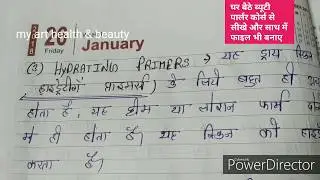 my art health & beauty
घर बैठे ब्युटी
पार्लर कोर्स से
सीखे और साथ में
फाइल भी बनाए
20
Friday
January
(3) HYDRATING PRIMERS → यह ड्राय स्किन
(हाइड्रेटिंग प्राइमर्स) के लिये बहुत ही
होता है, यह क्रीम या लोशन फार्म
में ही होता है। यह स्किन को
करता है।
PowerDirector